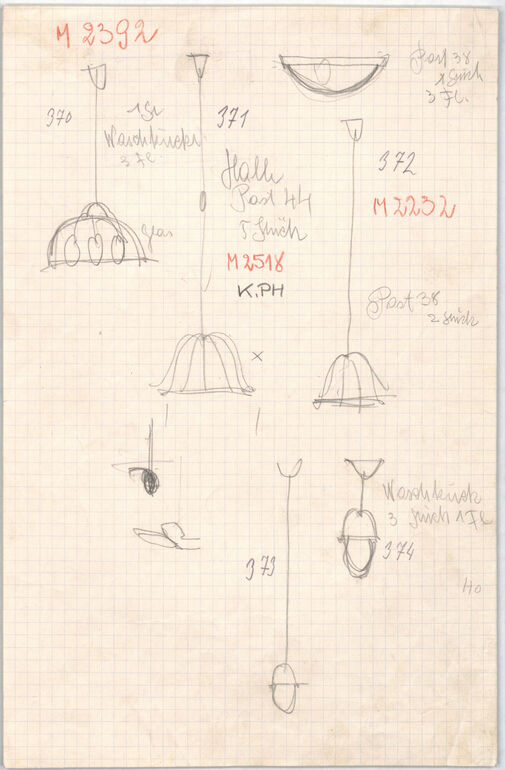 M 2392
370
1 St
Waschküche
3 Fl.
Glas
371
Halle
Post 44
5 Stück
M 2518
K.PH
x
Post 38
1 Stück
3 Fl.
372
M 2232
Post 38
2 Stück
373
Waschküche
3 Stück 1 Fl
374